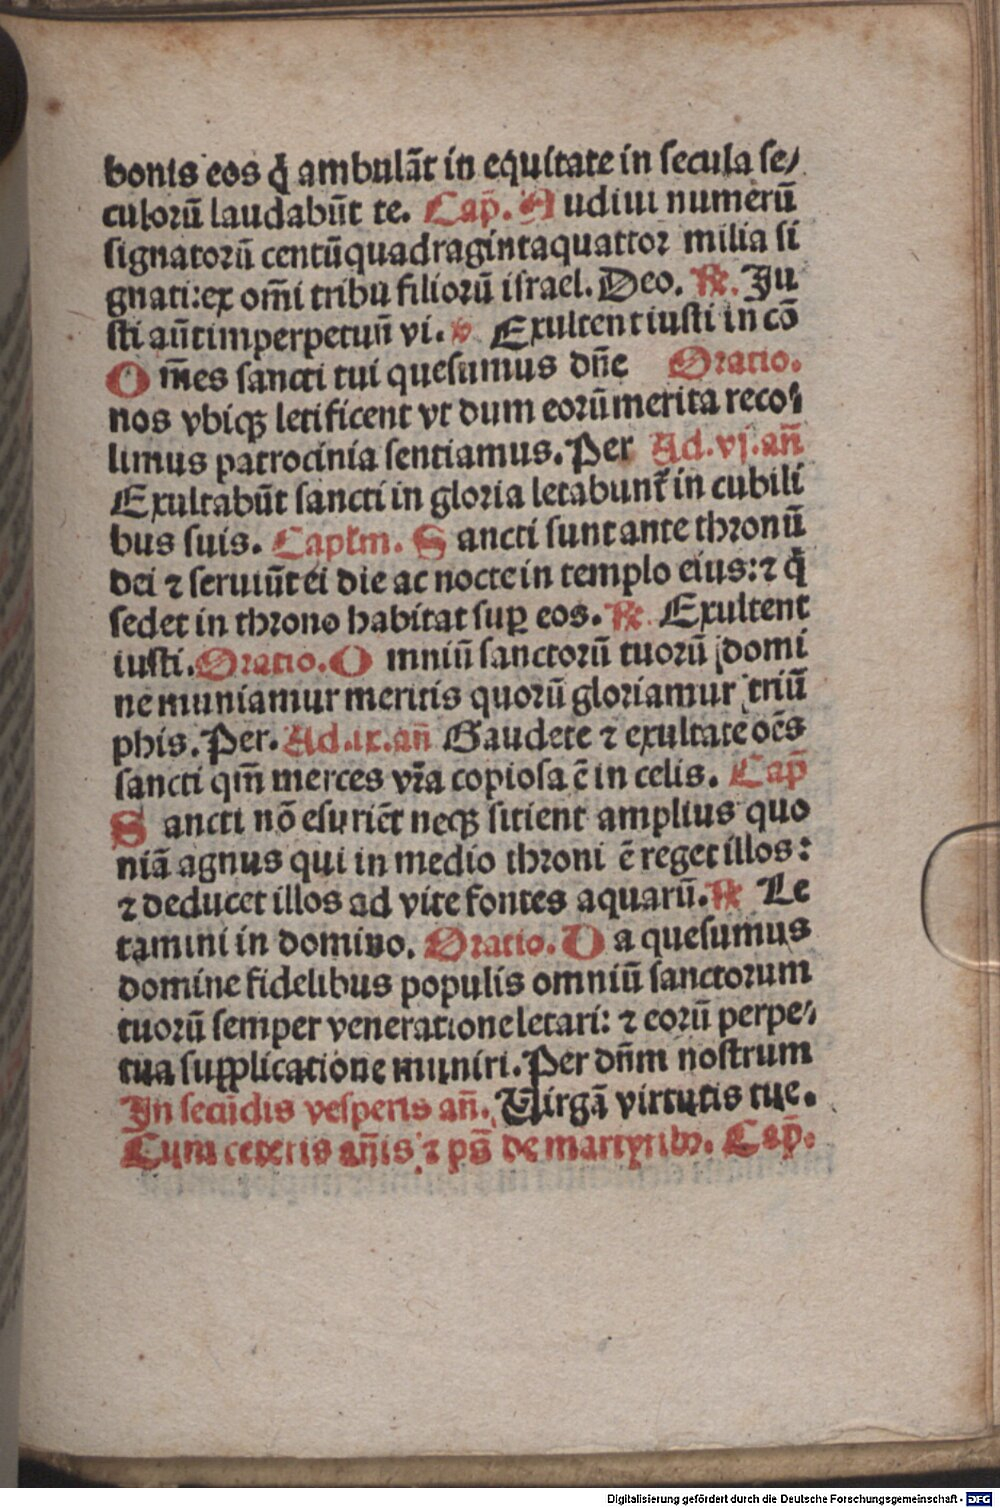 bonis eos q̄ ambulāt in equitate in secula se/
culorū laudabūt te. Cap̄. Audiui numerū
signatorū centūquadragintaquattor milia si
gnati:ex om̄i tribu filiorū israel. Deo. ℟. Ju
sti aūtimperpetuū vi. v Exultent iusti in cō
Om̄es sancti tui quesumus dn̄e Oratio.
nos vbiqꝫ letificent vt dum eorū merita reco/
limus patrocinia sentiamus. Per Ad. vj. an̄
Exultabūt sancti in gloria letabunt̄ in cubili
bus suis. Capłm. Sancti sunt ante thronū
dei ⁊ seruiūt ei die ac nocte in templo eius: ⁊ q̄
sedet in throno habitat suꝑ eos. ℟. Exultent
iusti. Oratio. Omniū sanctorū tuorū domi
ne muniamur meritis quorū gloriamur triū
phis. Per. Ad. ix. an̄ Gaudete ⁊ exultate oēs
sancti qm̄ merces vr̄a copiosa ē in celis. Cap̄
Sancti nō esuriēt neqꝫ sitient amplius quo
niā agnus qui in medio throni ē reget illos:
⁊ deducet illos ad vite fontes aquarū. ℟ Le
tamini in domino. Oratio. Da quesumus
domine fidelibus populis omniū sanctorum
tuorū semper veneratione letari: ⁊ eorū perpe/
tua supplicatione muniri. Per dn̄m nostrum
In secūdis vesperis an̄. Virgā virtutis tue.
Cum ceteris an̄is ⁊ ps̄ de martyribꝫ. Cap̄.
Digitalisierung gefördert durch die Deutsche Forschungsgemeinschaft - DFG